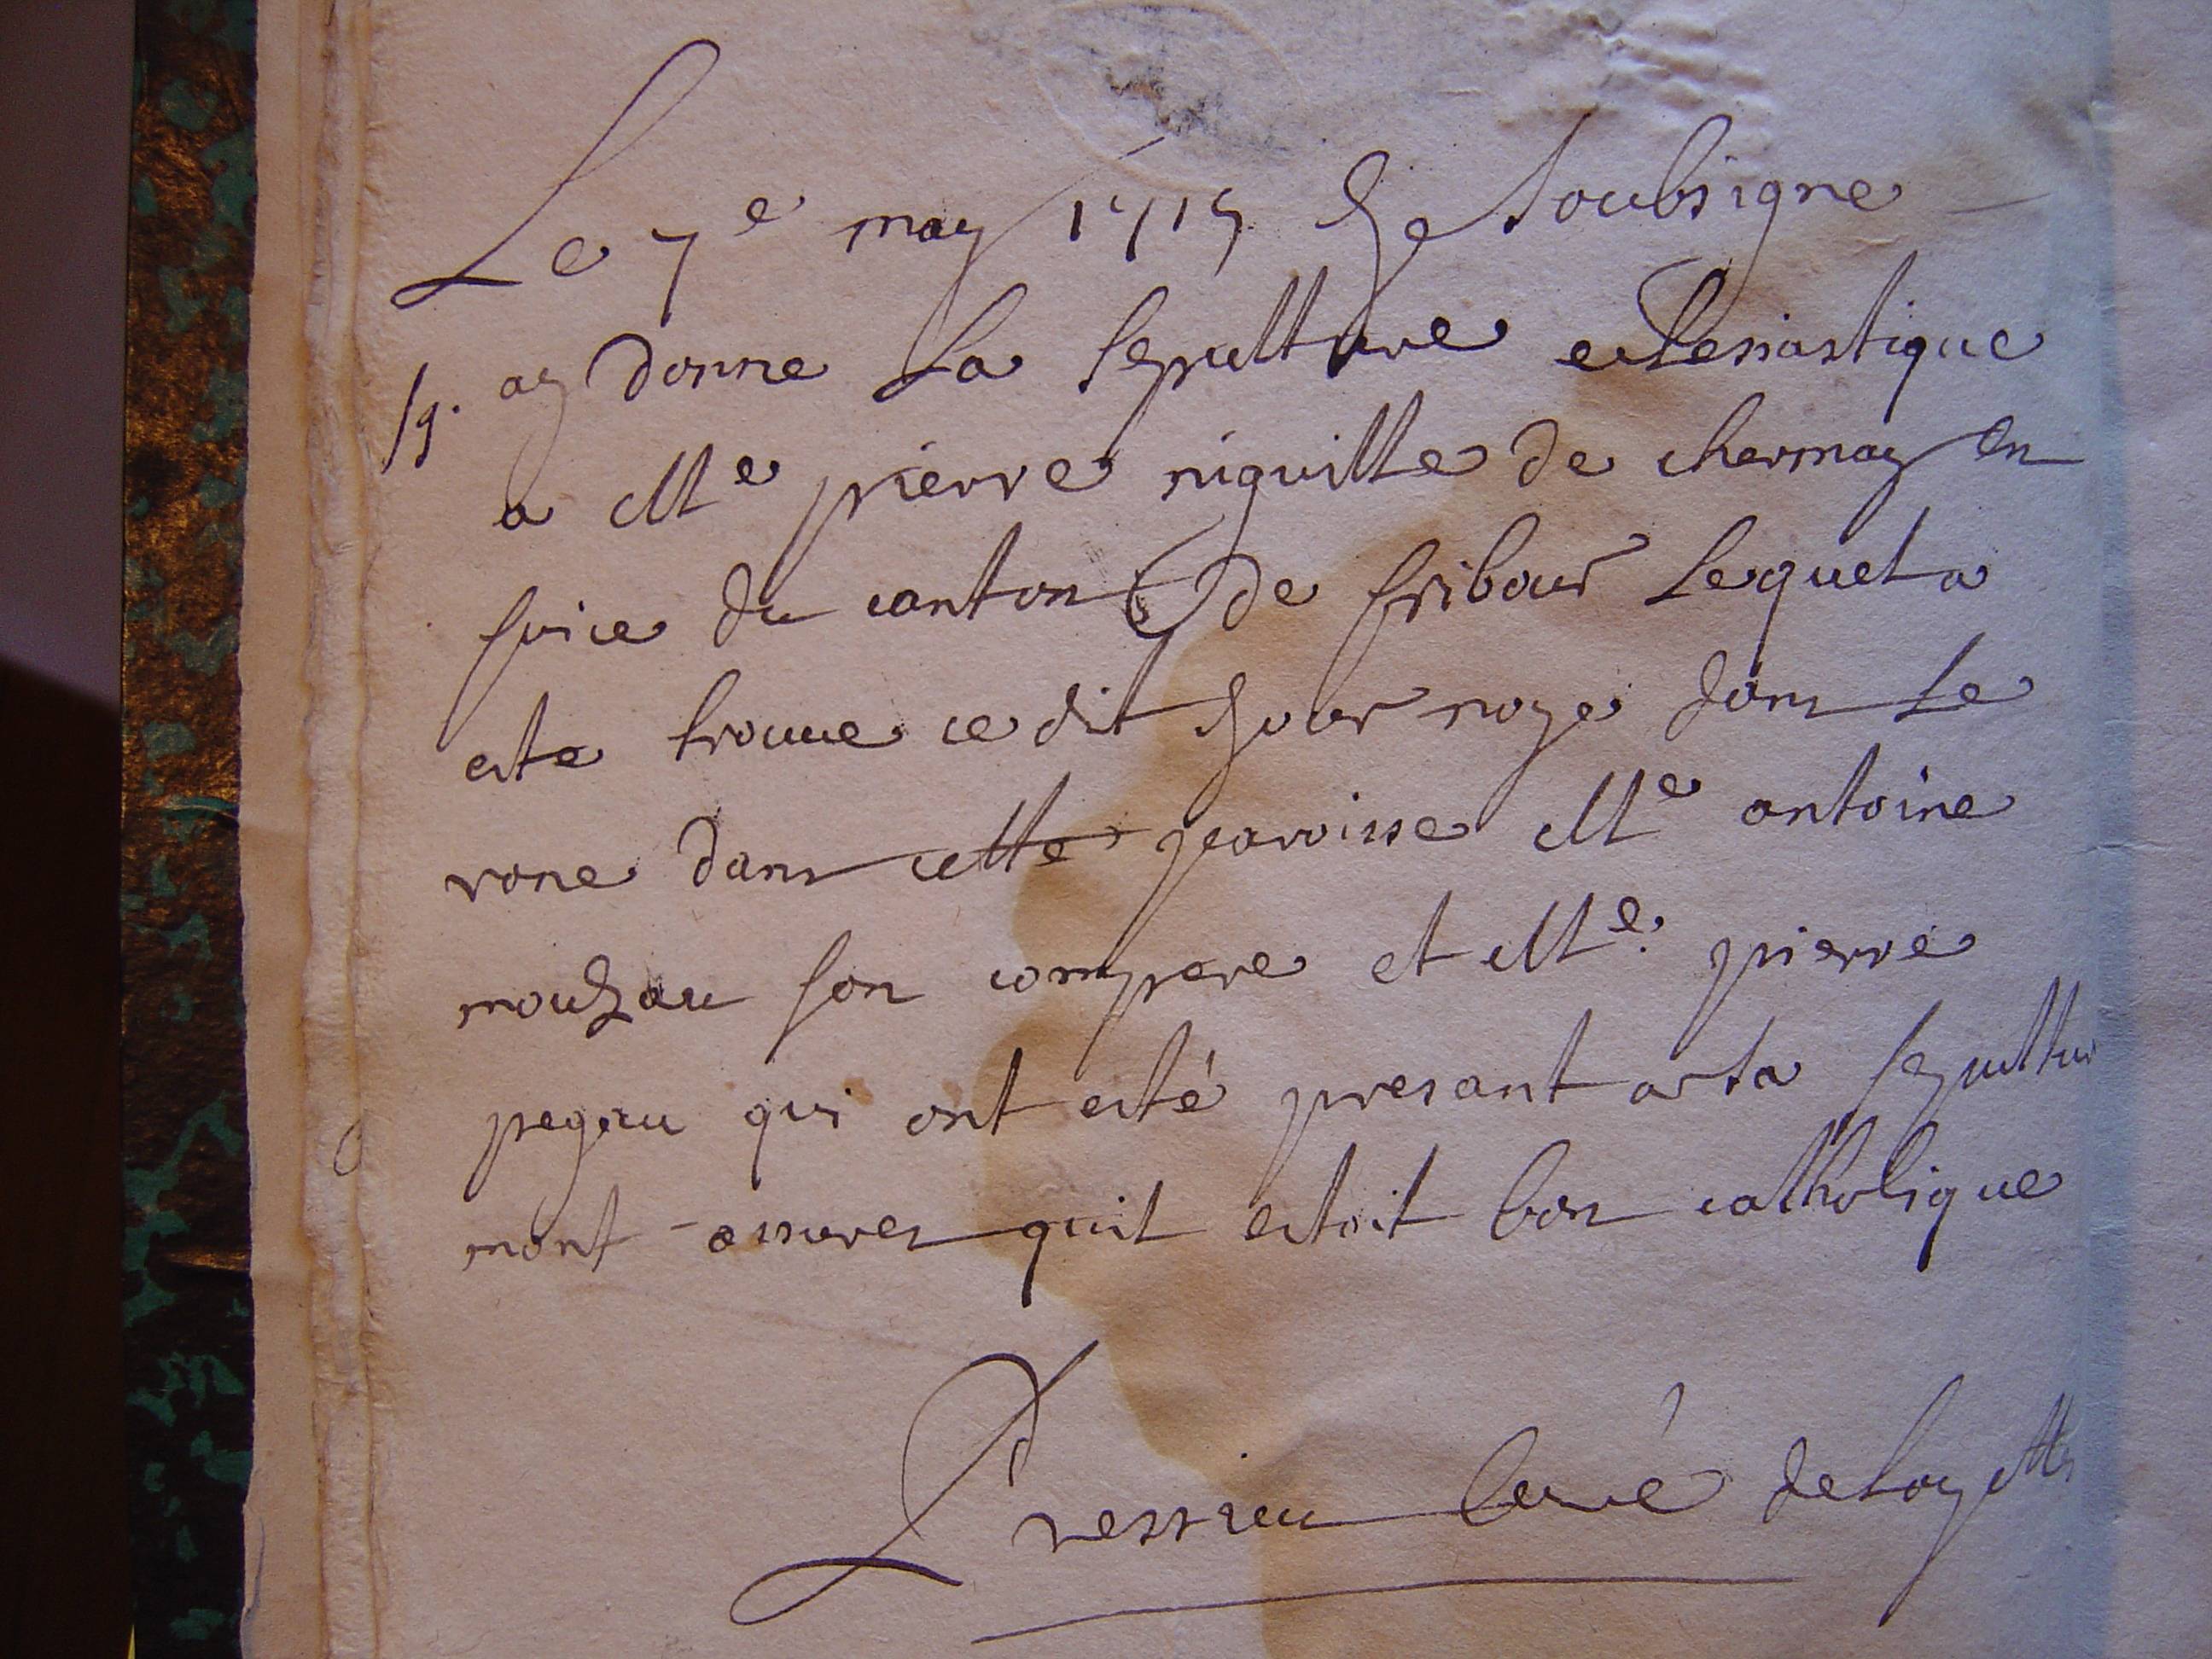 Le 7e may 1715 Je soubsigne
Sg. ay donne La sepulture eclesiastique
a Me pierre niquille de chermay en
suice du canton de fribour Lequel a
este trouue ce dit Jour noye dans le
rone dans cette paroisse Me antoine
son compere et Me. pierre
pegau qui ont esté presant a la sepultur
mont assures quil estoit bon catholique
Dressieu Curé de Loyettes